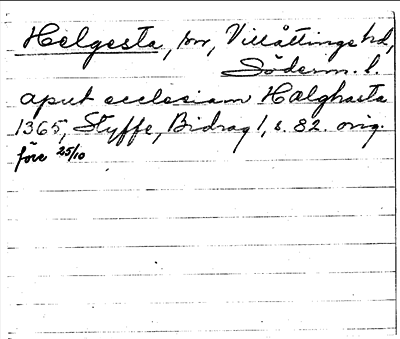 Helgesta, sn, Villåttinge hd,
Söderm. l.
aput ecclesiam Halghasta
1365, Styffe, Bidrag 1, s. 82. orig.
före 25/10